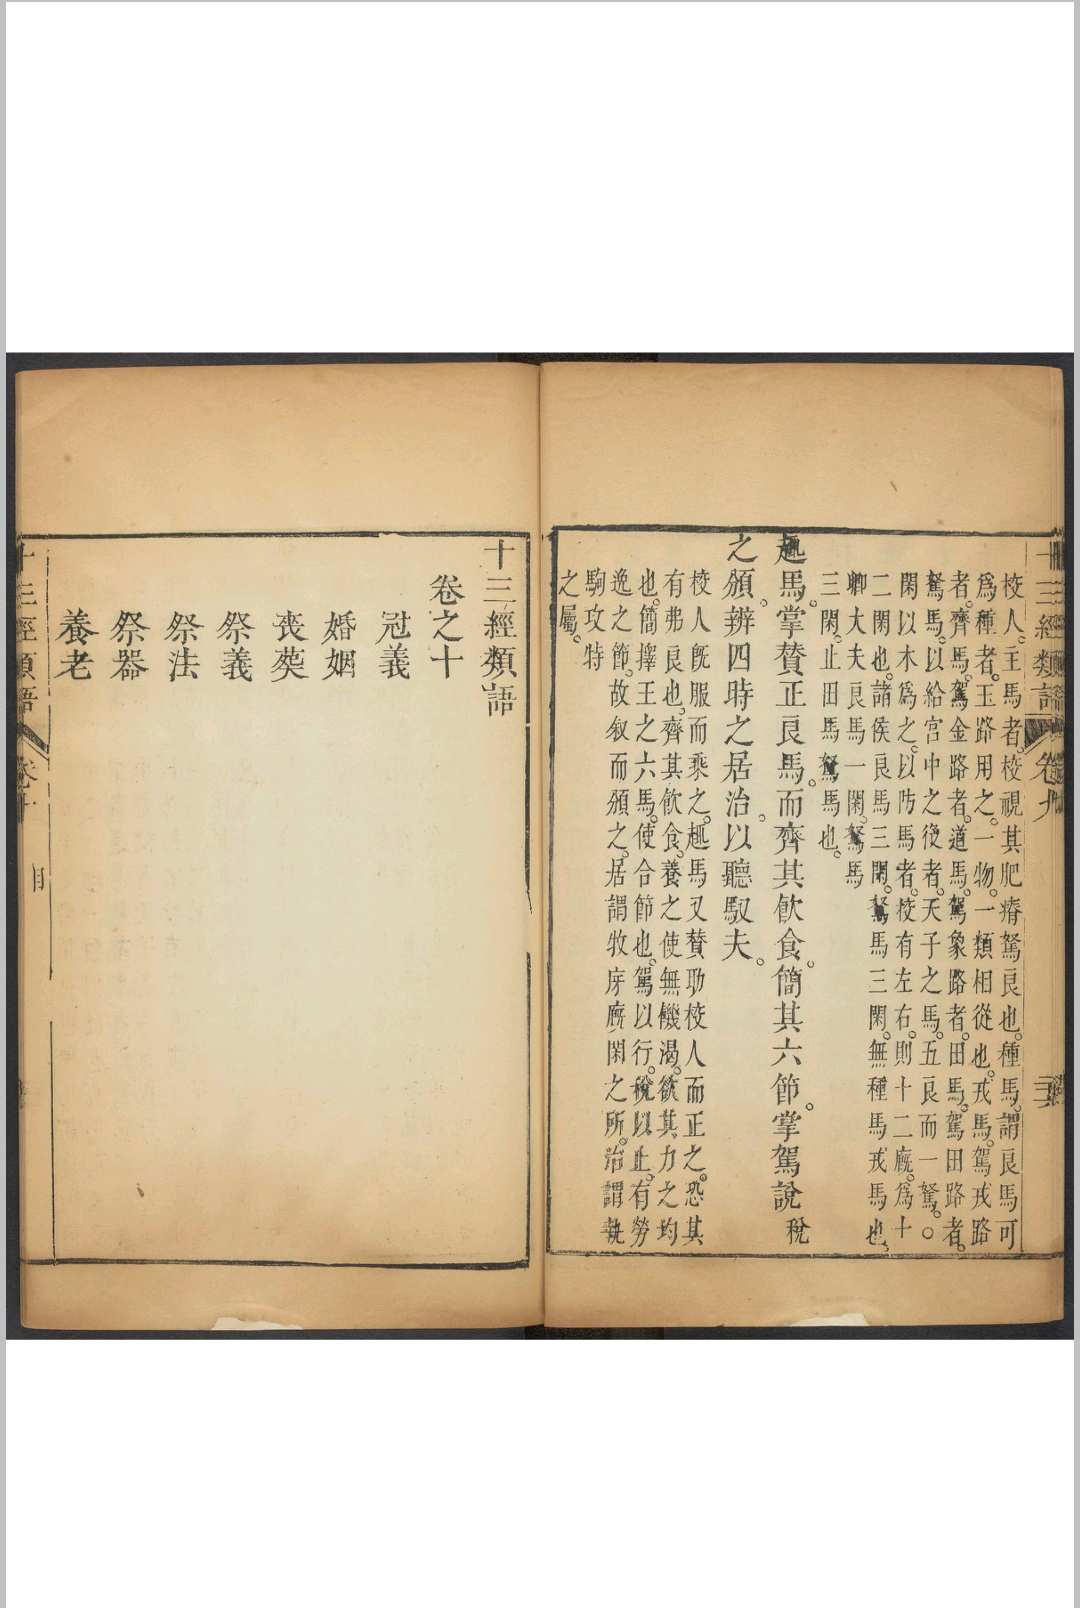 十三經類語 卷九
校人主馬者校視其肥瘠駑良也種馬謂良馬可
爲種者玉路用之一物一類相從也戎馬駕戎路
者齊馬駕金路者道馬駕象路者田馬駕田路者
駑馬以給宮中之後者天子之馬五良而一駑○
閑以木爲之以防馬者校有左右則十二廐爲十
二閑也諸侯良馬三閑駑馬三閑無種馬戎馬也
卿大夫良馬一閑駑馬
三閑止田馬駑馬也
趣馬掌贊正良馬而齊其飲食簡其六節掌駕說稅
之頒辨四時之居治以聽馭夫
校人旣服而乘之趣馬又贊助校人而正之恐其
有弗良也齊其飲食養之使無饑渴欲其力之均
也簡擇王之六馬使合節也駕以行稅以止有勞
逸之節故叙而頒之居謂牧庌廐閑之所治謂執
駒攻特
之屬
十三經類語
卷之十
冠義
婚姻
喪葬
祭義
祭法
祭器
養老
十三經類語 卷十